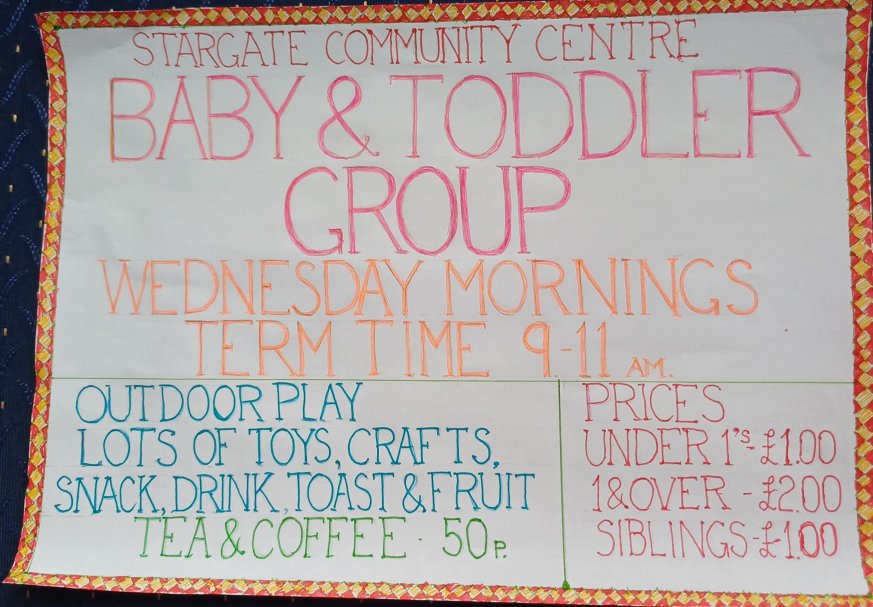 STARGATE COMMUNITY CENTRE
BABY & TODDLER
GROUP
WEDNESDAY MORNINGS
TERM TIME 9.-11 AM.
OUTDOOR PLAY
LOTS OF TOYS, CRAFTS,
SNACK, DRINK, TOAST & FRUIT
TEA & COFFEE - 50P.
PRICES
UNDER 1'S - £1.00
1 & OVER - £2.00
SIBLINGS - £1.00